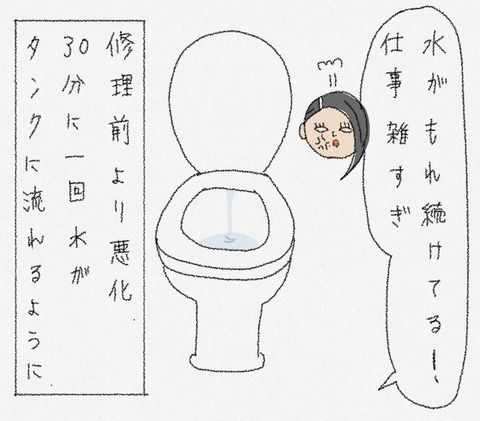 水がもれ続けてるー、
仕事雑すぎ
修理前より悪化
30分に一回水が
タンクに流れるように